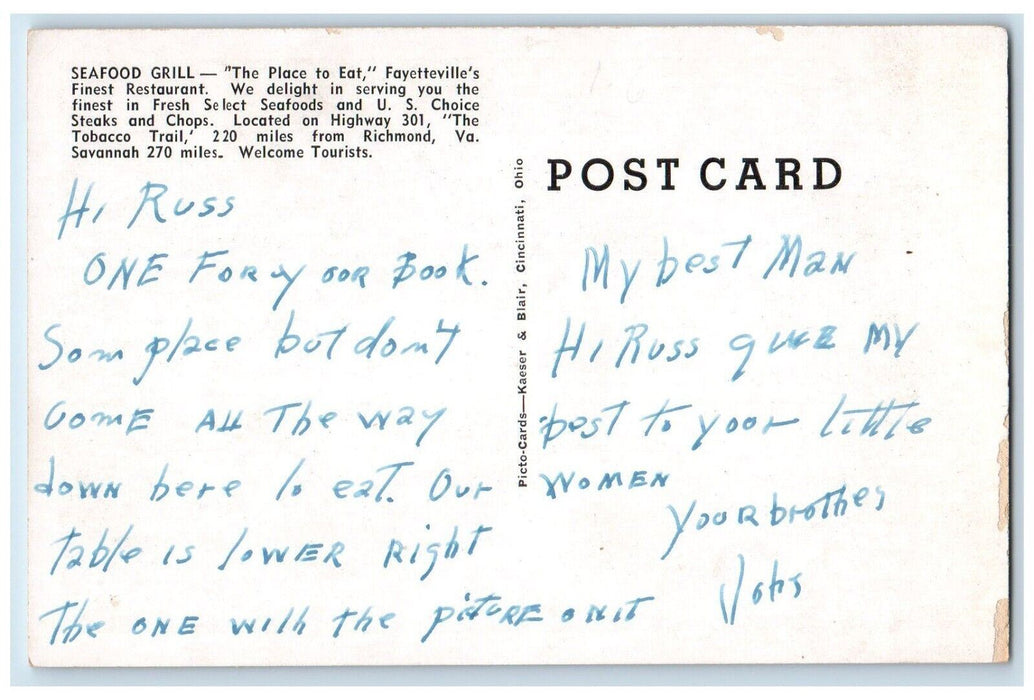 SEAFOOD GRILL — "The Place to Eat," Fayetteville's
Finest Restaurant. We delight in serving you the
finest in Fresh Select Seafoods and U. S. Choice
Steaks and Chops. Located on Highway 301, "The
Tobacco Trail,' 220 miles from Richmond, Va.
Savannah 270 miles. Welcome Tourists.
Hi Russ
ONE For yoor Book.
Som place but don't
come All The way
down here to eat. Our
table is lower Right
The one with the picture on it
Picto-Cards—Kaeser & Blair, Cincinnati, Ohio
POST CARD
My best Man
Hi Russ give My
best to yoor little
women
Yoor brother